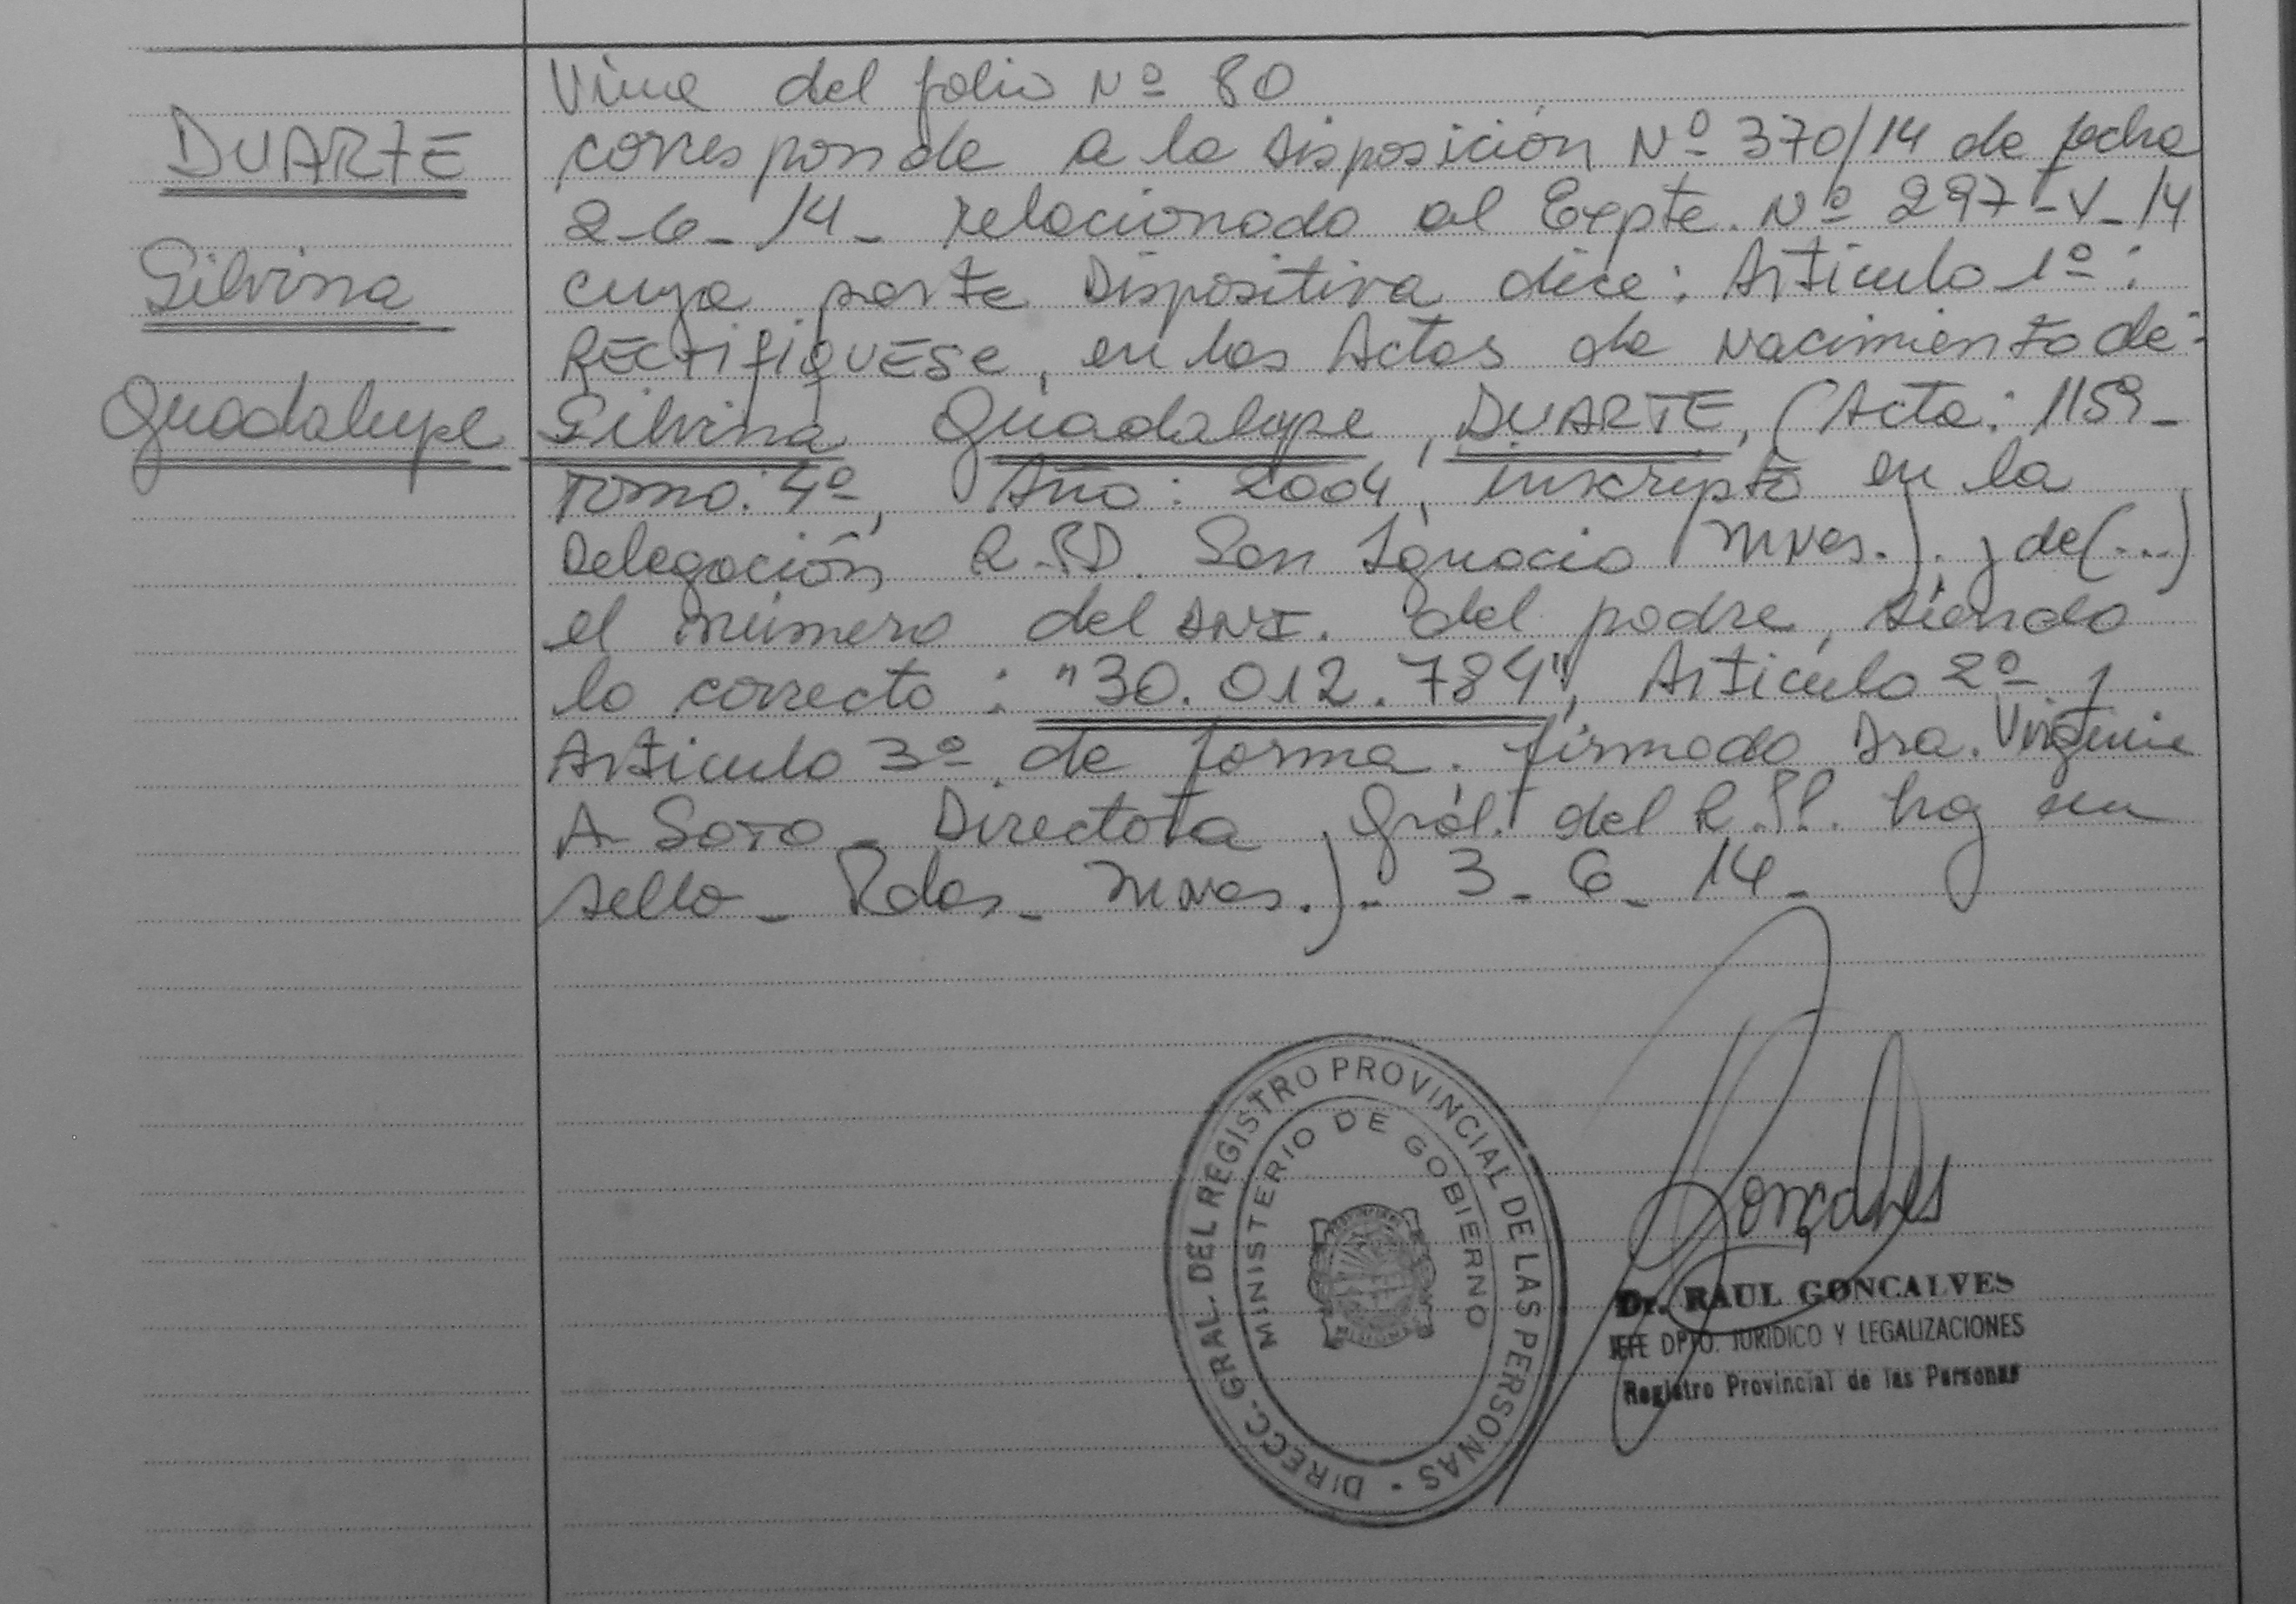 Viene del folio Nº 80
DUARTE
corresponde a la Disposición Nº 370/14 de fecha
2-6-14- relacionado al Expte. Nº 297-V-14
Silvina
cuya parte Dispositiva dice: Articulo 1º:
RECTIFIQUESE, en las Actas de Nacimiento de:
Guadalupe
Silvina Guadalupe, DUARTE, (Acta: 1159-
Tomo: 4º, Año: 2004, inscripto en la
Delegación R.P.P. San Ignacio Mnes.). y de(...)
el número del DNI. del padre, siendo
lo correcto: "30.012.784", Articulo 2º y
Articulo 3º de forma. firmado Dra. Virginia
A Soto - Directora Gral. del R.P.P. hay un
sello - Pdas - Mnes.).- 3-6-14-
DIRECC. GRAL. DEL REGISTRO PROVINCIAL DE LAS PERSONAS -
MINISTERIO DE GOBIERNO
Goncalves
Dr. RAUL GONCALVES
JEFE DPTO. JURIDICO Y LEGALIZACIONES
Registro Provincial de las Personas